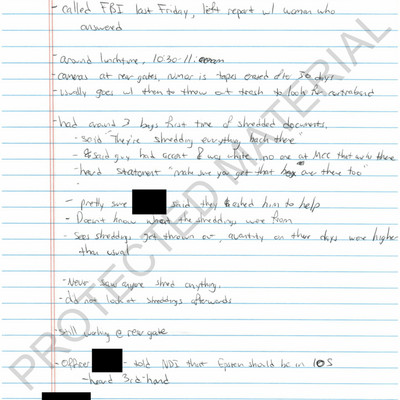 - called FBI last Friday, left report w/ woman who
answered
- around lunchtime, 10:30-11:
- cameras at rear gates, rumor is tapes erased after 30 days
- usually goes w/ them to throw out trash to look for contraband
- had around 3 bags first time of shredded documents,
- said "They're shredding everything back there"
- said guy had accent & was white, no one at MCC that works there
- heard statement "make sure you get that box over there too"
-
- pretty sure said they asked him to help
- Doesn't know where the shreddings were from
- sees shreddings get thrown out, quantity on those days were higher
than usual
- Never saw anyone shred anything.
- did not look at shreddings afterwards
- still working @ rear gate
- Officer - told NDI that Epstein should be in 10S
- heard 3rd-hand
PROTECTED MATERIAL